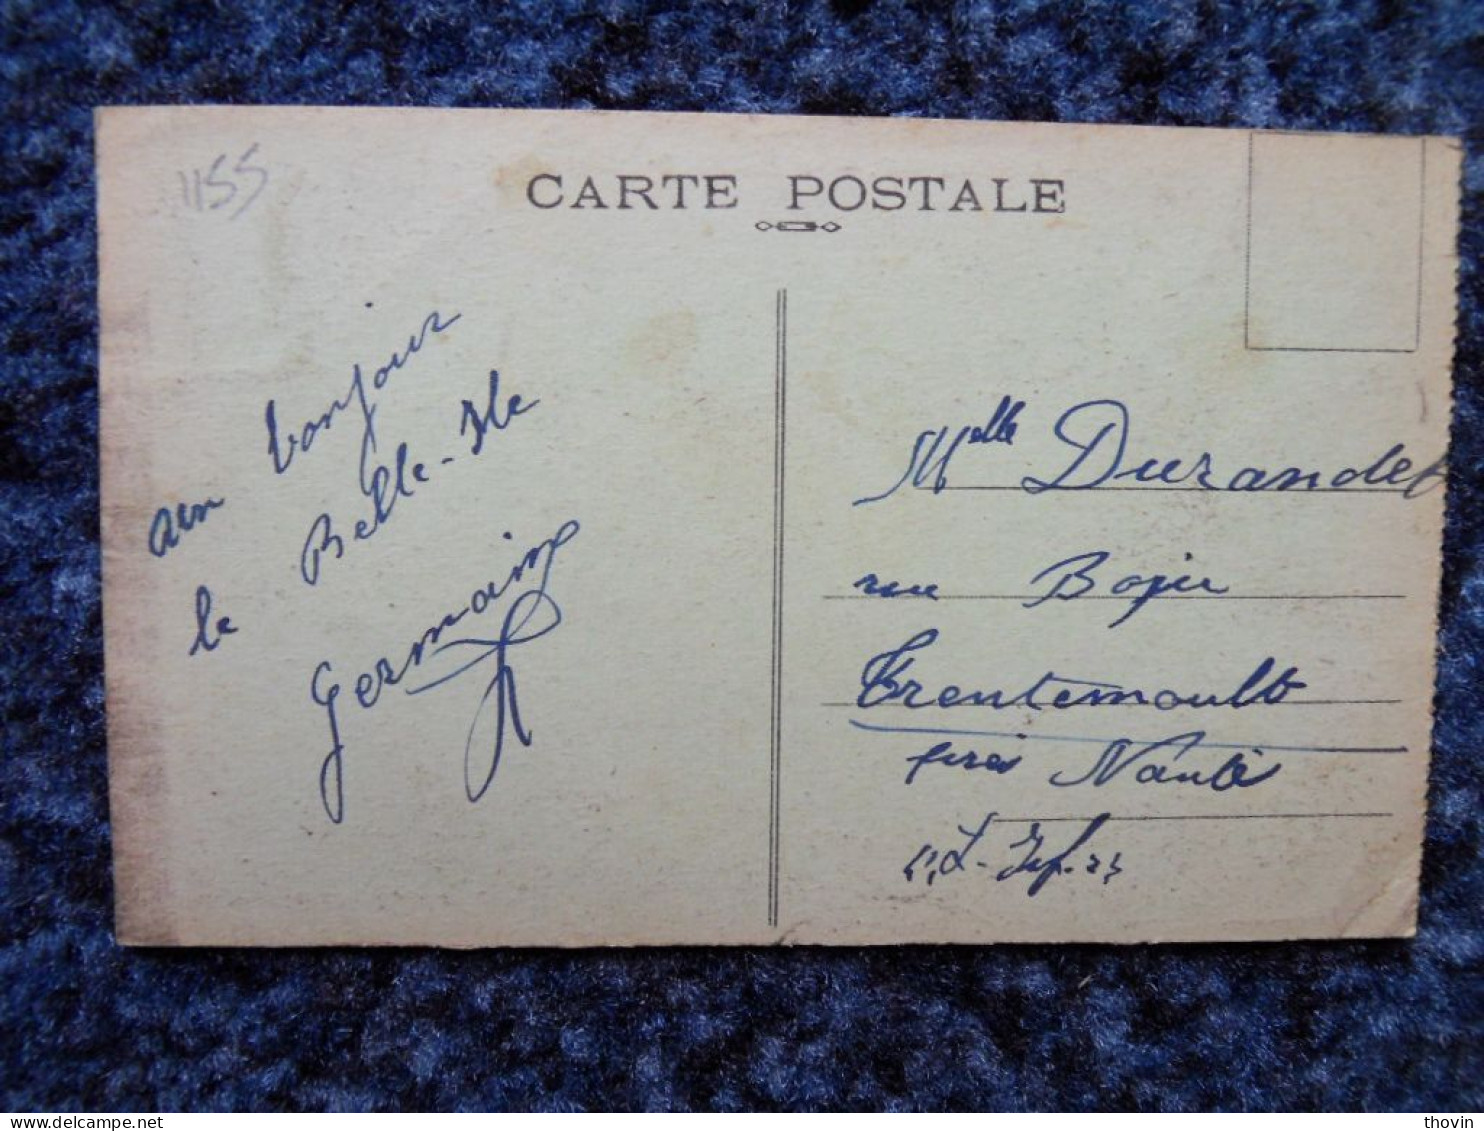 1155
CARTE POSTALE
un bonjour
de Belle-Ile
Germaine
Melle Durandet
rue Boju
Trentemoult
près Nantes
L. Inf.
thovin